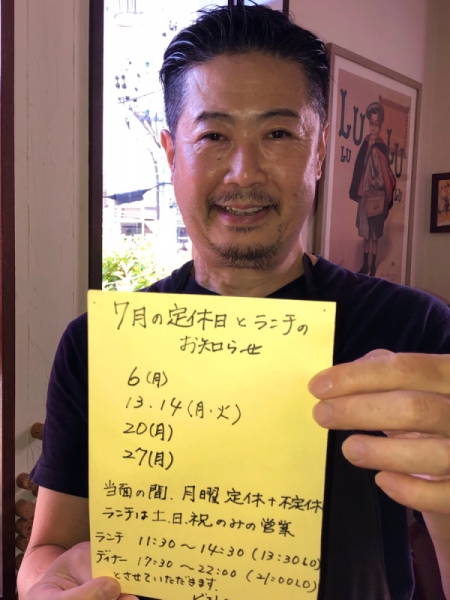 LULU
LU LO
7月の定休日とランチの
お知らせ
6(月)
13.14(月・火)
20(月)
27(月)
当面の間、月曜定休+不定休
ランチは土.日.祝のみの営業
ランチ 11:30〜14:30(13:30LO)
ディナー 17:30〜22:00(21:00LO)
とさせていただきます.